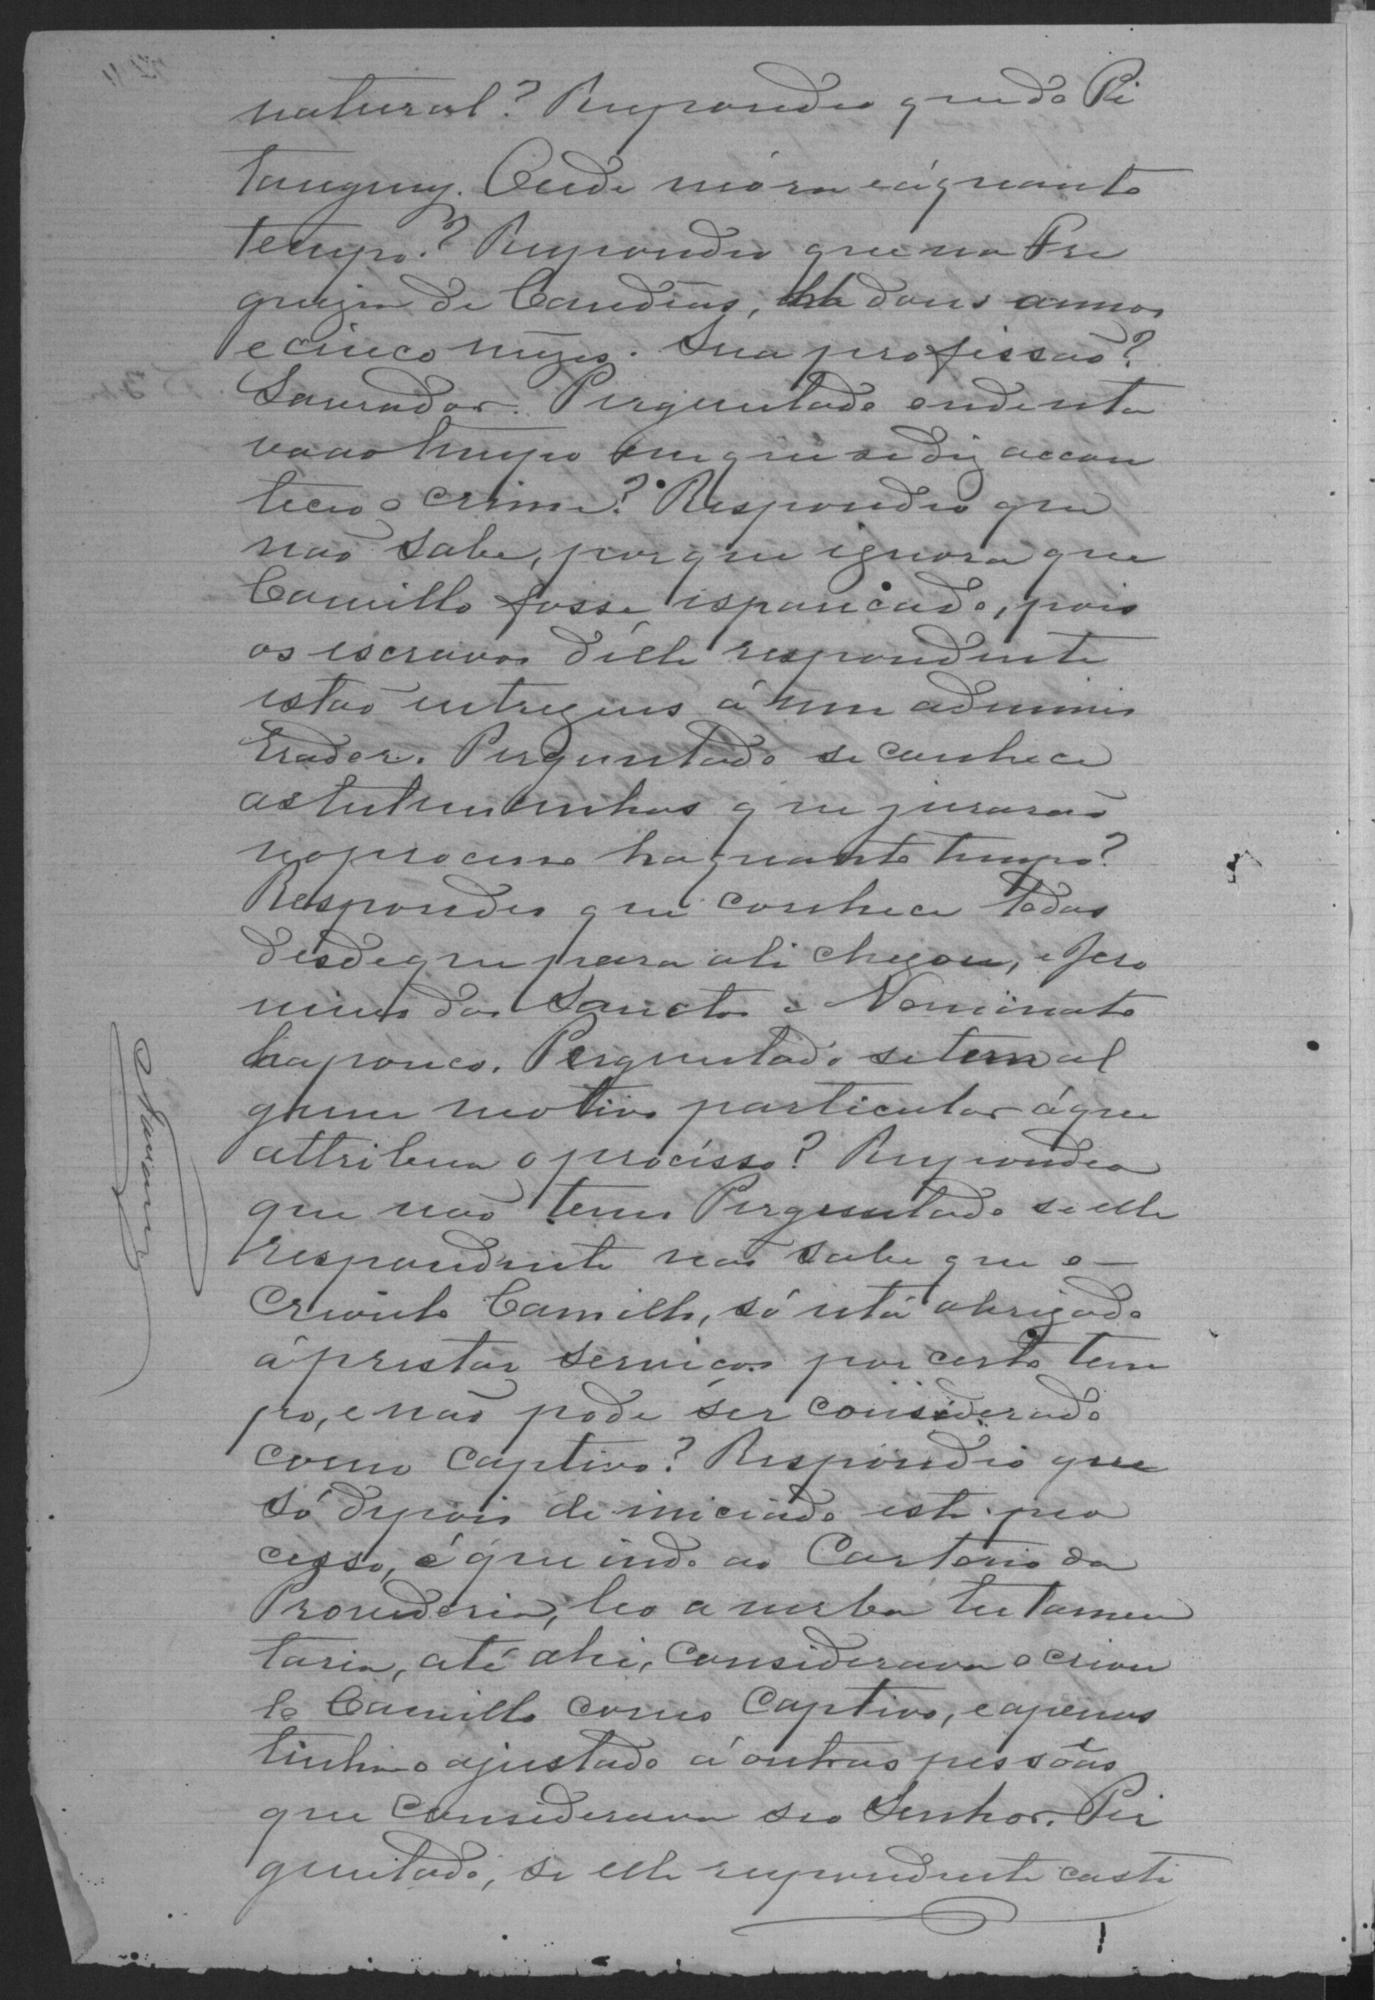 natural? Respondeo que do Pi
tanguy. Onde móra e á quanto
tempo? Respondeo que na Fre
guezia de Candeas, ha dous annos
e cinco mezes. Sua profissaõ?
Lavrador. Perguntado onde esta
va ao tempo em que se diz accon
teceo o crime? Respondeo que
naõ sabe, por que ignora que
Camillo fosse espancado, pois
os escravos d'elle respondente
estaõ entregues á um adminis
trador. Perguntado se conhece
as testemunhas que juraraõ
no processo ha quanto tempo?
Respondeo que conhece todas
desde que para ali chegou, e Jero
nimo dos Sanctos e Nominato
ha pouco. Perguntado se tem al
gum motivo particular á que
attribua o processo? Respondeo
que naõ tem. Perguntado se elle
respondente naõ sabe que o
Crioulo Camillo, só está obrigado
á prestar serviços por certo tem
po, e naõ pode ser considerado
como captivo? Respondeo que
só depois de iniciado este pro
cesso, é que indo ao Cartorio da
Provedoria, leo a verba testamen
taria, até ahi, considerava o criou
lo Camillo como Captivo, e apenas
tinha o ajustado á outras pessôas
que considerava seo Senhor. Per
guntado, se elle respondente casti